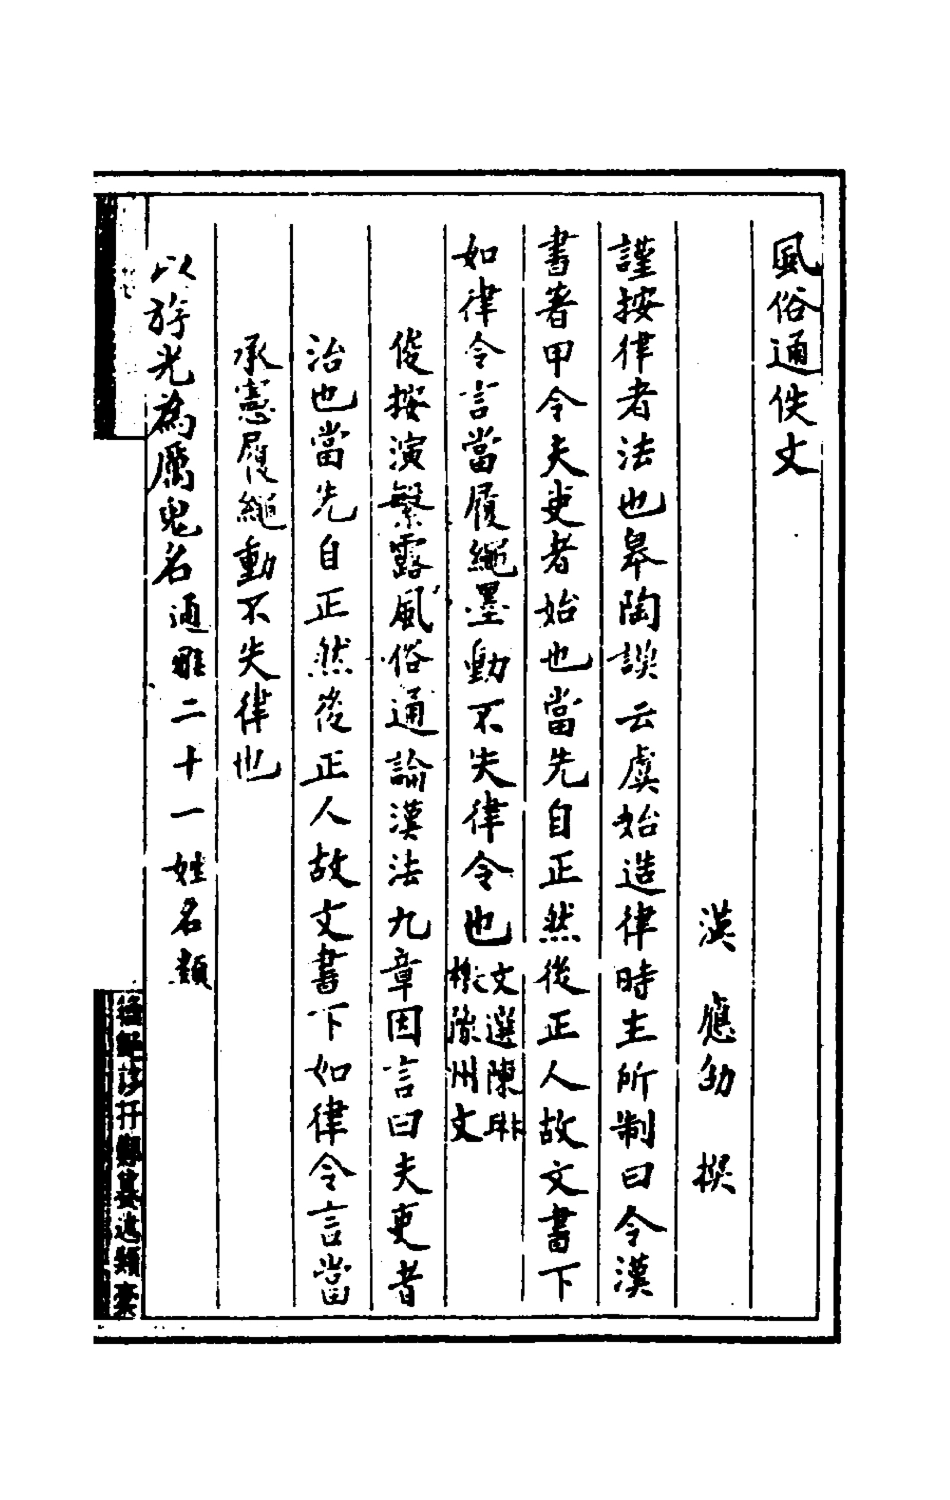 風俗通佚文
漢　應劭　撰
謹按律者法也皋陶謨云虞始造律時主所制曰令漢
書著甲令夫吏者始也當先自正然後正人故文書下
如律令言當履繩墨動不失律令也文選陳琳
檄豫州文
俊按演繁露風俗通論漢法九章因言曰夫吏者
治也當先自正然後正人故文書下如律令言當
承憲履繩動不失律也
以斿光為厲鬼名通雅二十一姓名類